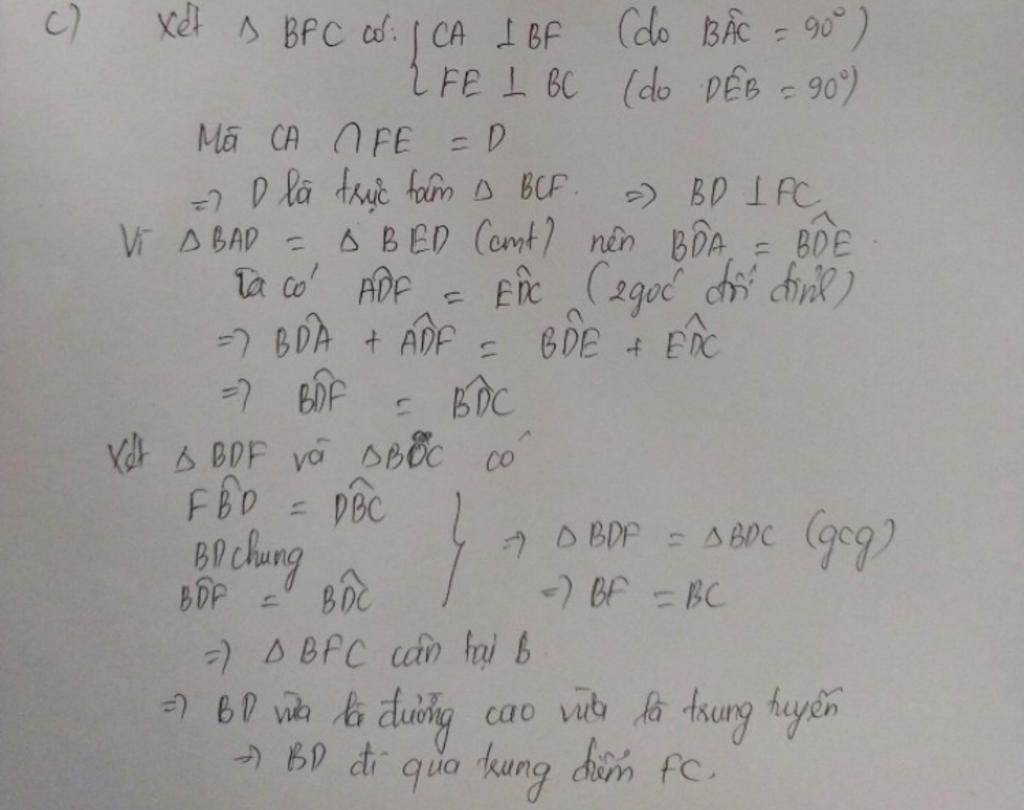 c) Xét Δ BFC có: { CA ⊥ BF (do BÂC = 90°)
FE ⊥ BC (do DÊB = 90°)
Mà CA ∩ FE = D
=> D là trực tâm Δ BCF. => BD ⊥ FC
Vì Δ BAD = Δ BED (cmt) nên BD̂A = BD̂E
Ta có AD̂F = ED̂C (2góc đối đỉnh)
=> BD̂A + AD̂F = BD̂E + ED̂C
=> BD̂F = BD̂C
Xét Δ BDF và Δ BDC có
FB̂D = DB̂C
BD chung
BD̂F = BD̂C
} => Δ BDF = Δ BDC (gcg)
=> BF = BC
=> Δ BFC cân tại B
=> BD vừa là đường cao vừa là trung tuyến
=> BD đi qua trung điểm FC.